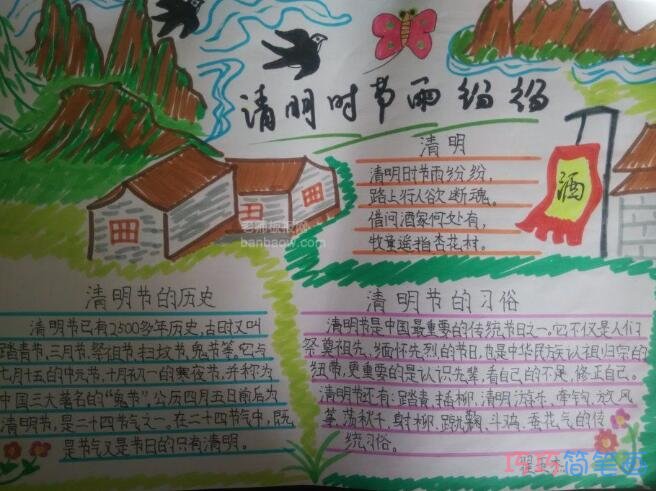 清明时节雨纷纷
清明
清明时节雨纷纷,
路上行人欲断魂。
借问酒家何处有,
牧童遥指杏花村。
酒
老师板报网
banbaow.com
清明节的历史
清明节已有2500多年历史,古时又叫
踏青节、三月节、祭祖节、扫坟节、鬼节等。它与
七月十五的中元节、十月初一的寒夜节,并称为
中国三大著名的“鬼节”。公历四月五日前后为
清明节,是二十四节气之一。在二十四节气中,既
是节气又是节日的只有清明。
清明节的习俗
清明节是中国最重要的传统节日之一。它不仅是人们
祭奠祖先、缅怀先烈的节日,也是中华民族认祖归宗的
纽带,更重要的是认识先辈,看自己的不足,修正自己。
清明节还有:踏青、插柳、清明游千、牵钩、放风
筝、荡秋千、射柳、蹴鞠、斗鸡、蚕花气的传
统习俗。
简笔画